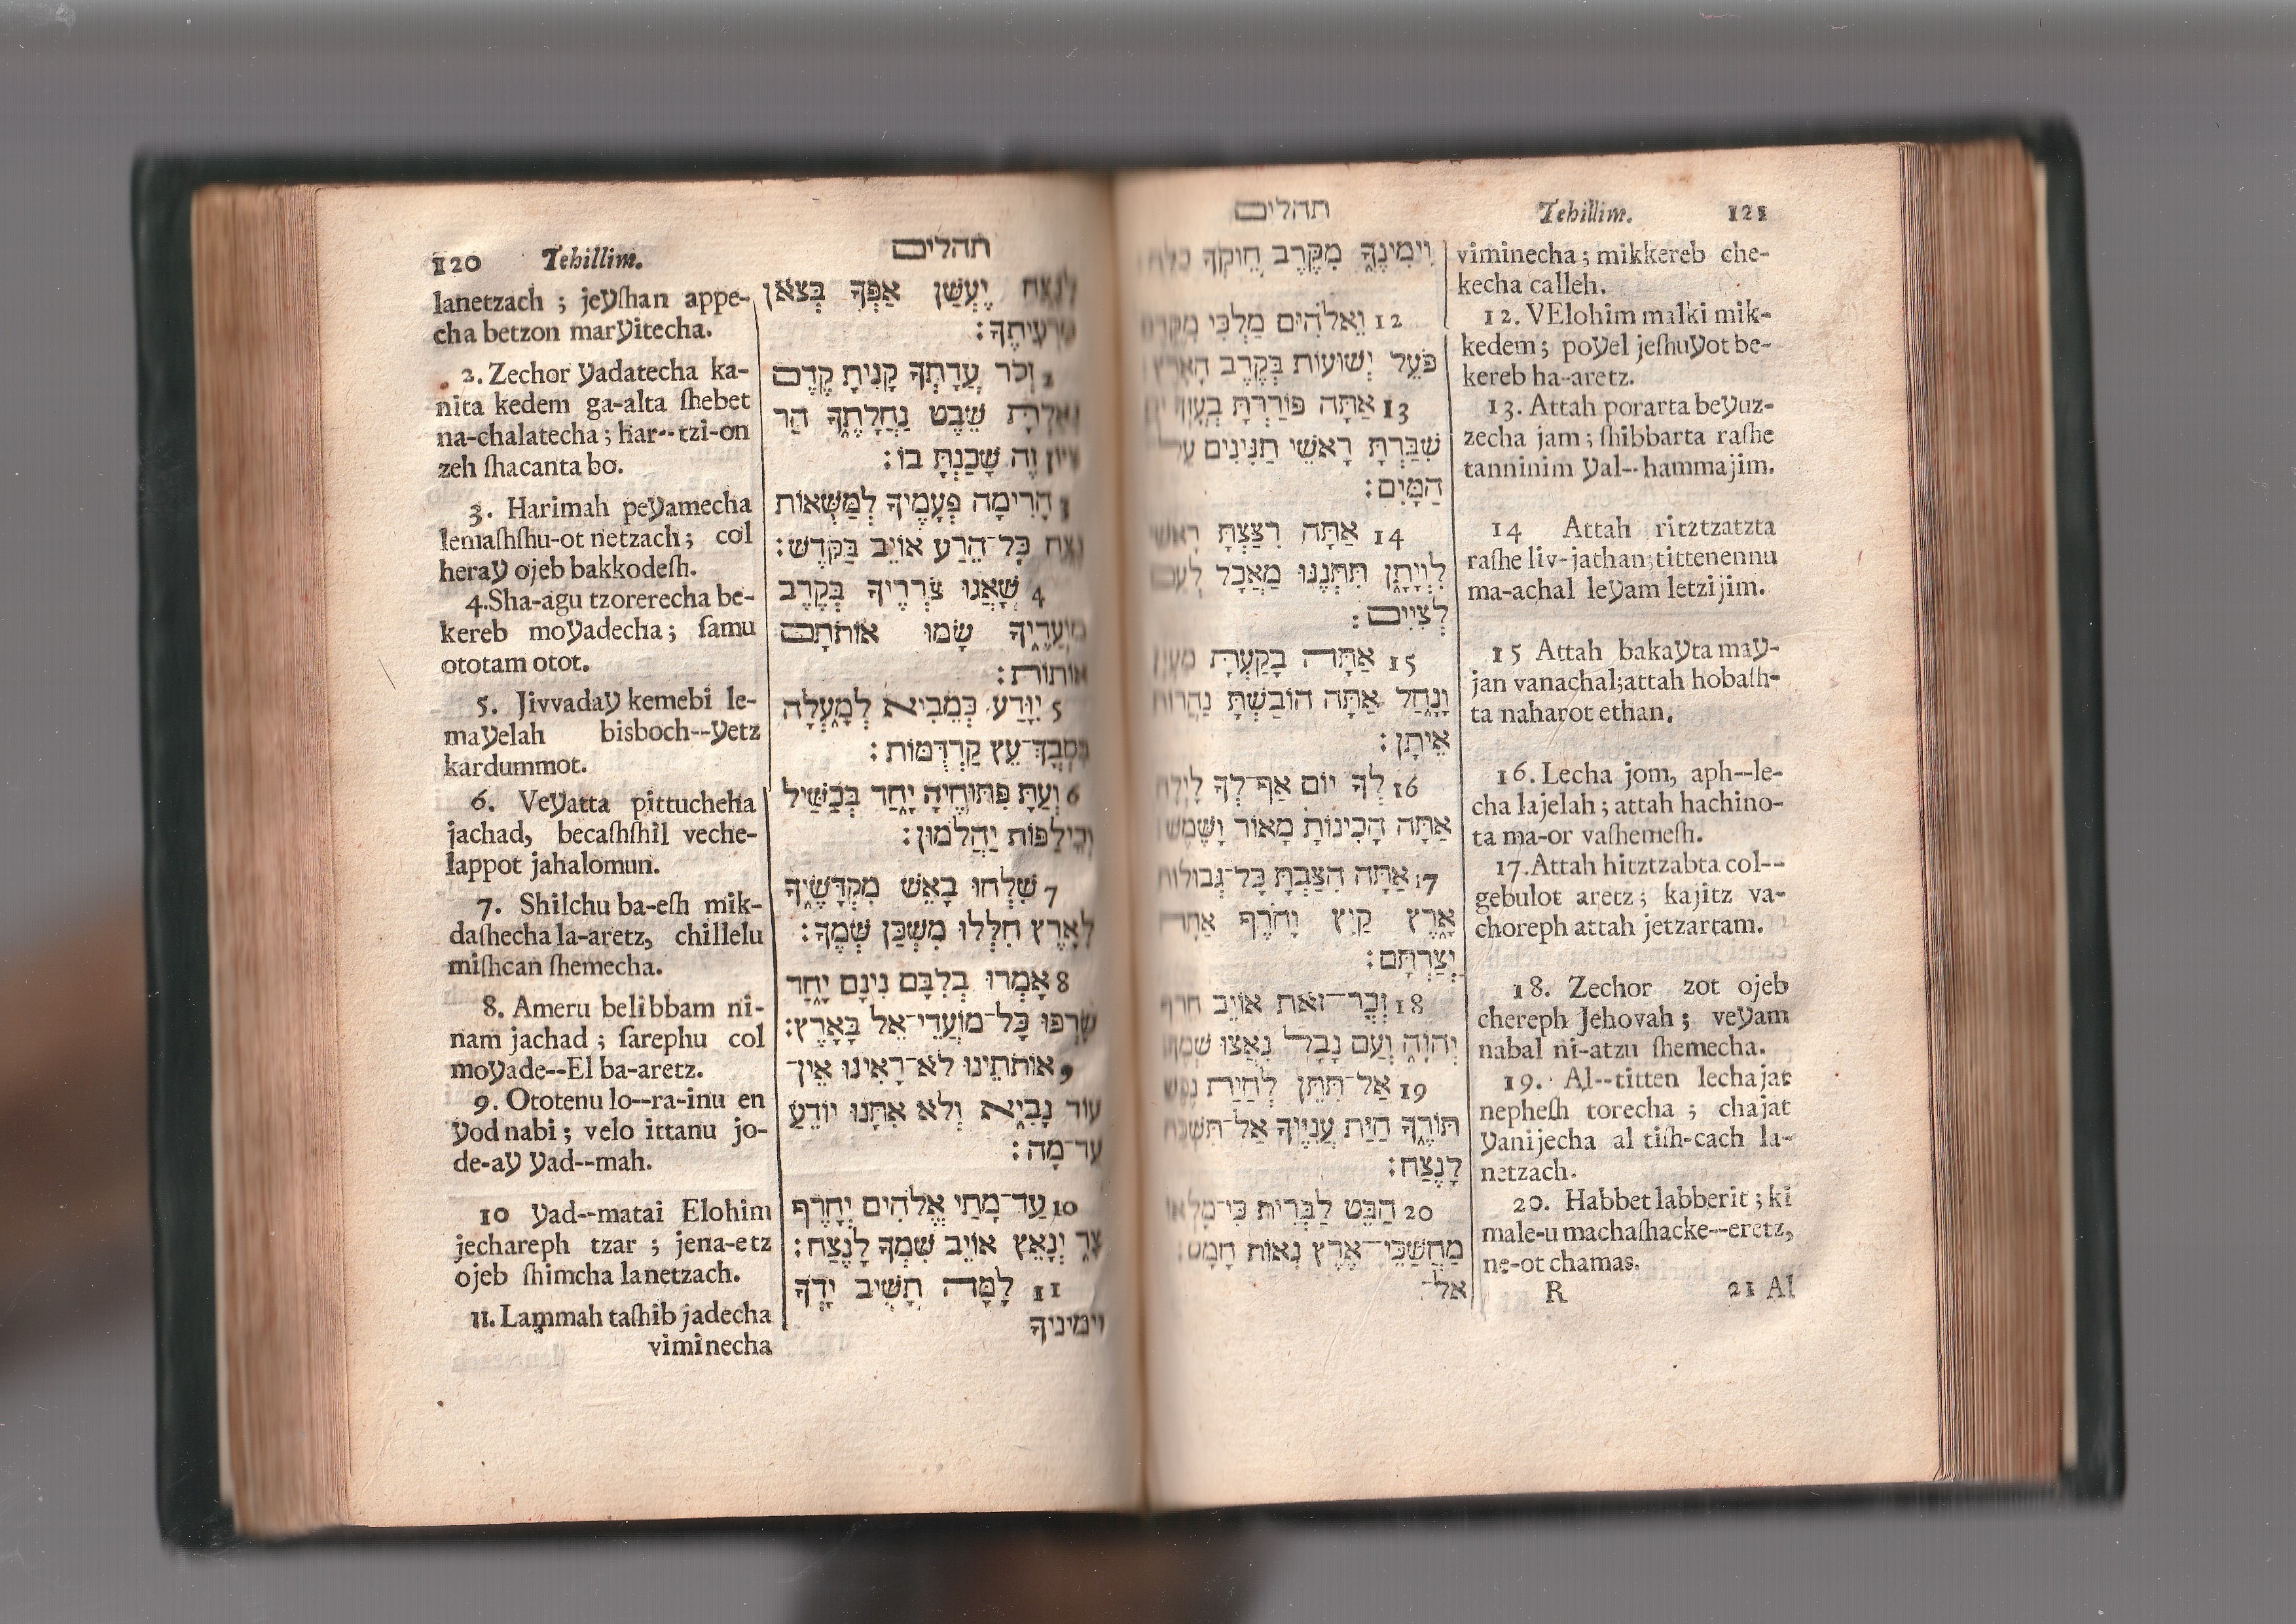 120 Tehillim.
lanetzach ; jeyſhan appe-
cha betzon maryitecha.
2. Zechor yadatecha ka-
nita kedem ga-alta ſhebet
na-chalatecha ; har--tzi-on
zeh ſhacanta bo.
3. Harimah peyamecha
lemaſhſhu-ot netzach ; col
heray ojeb bakkodeſh.
4.Sha-agu tzorerecha be-
kereb moyadecha ; ſamu
ototam otot.
5. Jivvaday kemebi le-
mayelah bisboch--yetz
kardummot.
6. Veyatta pittucheha
jachad, becaſhſhil veche-
lappot jahalomun.
7. Shilchu ba-eſh mik-
daſhecha la-aretz, chillelu
miſhcan ſhemecha.
8. Ameru belibbam ni-
nam jachad ; ſarephu col
moyade--El ba-aretz.
9. Ototenu lo--ra-inu en
yod nabi ; velo ittanu jo-
de-ay yad--mah.
10 yad--matai Elohim
jechareph tzar ; jena-etz
ojeb ſhimcha lanetzach.
11. Lammah taſhib jadecha
viminecha
תהלים
לָנֶצַח יֶעְשַׁן אַפְּךָ בְּצֹאן
מַרְעִיתֶךָ׃
זְכֹר עֲדָתְךָ קָנִיתָ קֶדֶם
גָּאַלְתָּ שֵׁבֶט נַחֲלָתֶךָ הַר
צִיּוֹן זֶה שָׁכַנְתָּ בּוֹ׃
3 הָרִימָה פְעָמֶיךָ לְמַשֻּׁאוֹת
נֶצַח כָּל־הֵרַע אוֹיֵב בַּקֹּדֶשׁ׃
4 שָׁאֲגוּ צֹרְרֶיךָ בְּקֶרֶב
מוֹעֲדֶיךָ שָׂמוּ אוֹתֹתָם
אוֹתוֹת׃
5 יִוָּדַע כְּמֵבִיא לְמָעְלָה
בִּסְבָךְ־עֵץ קַרְדֻּמּוֹת׃
6 וְעַתָּ פִּתּוּחֶיהָ יָחַד בְּכַשִּׁיל
וְכֵילַפּוֹת יַהֲלֹמוּן׃
7 שִׁלְחוּ בָאֵשׁ מִקְדָּשֶׁיךָ
לָאָרֶץ חִלְּלוּ מִשְׁכַּן שְׁמֶךָ׃
8 אָמְרוּ בְלִבָּם נִינָם יָחַד
שָׂרְפוּ כָל־מוֹעֲדֵי־אֵל בָּאָרֶץ׃
9 אוֹתֹתֵינוּ לֹא־רָאִינוּ אֵין־
עוֹד נָבִיא וְלֹא אִתָּנוּ יוֹדֵעַ
עַד־מָה׃
10 עַד־מָתַי אֱלֹהִים יְחָרֶף
צָר יְנָאֵץ אוֹיֵב שִׁמְךָ לָנֶצַח׃
11 לָמָּה תָשִׁיב יָדְךָ
וימיניך
תהלים
וִימִינֶךָ מִקֶּרֶב חֵוקְךָ כַלֵּה׃
12 וֵאלֹהִים מַלְכִּי מִקֶּדֶם
פֹּעֵל יְשׁוּעוֹת בְּקֶרֶב הָאָרֶץ׃
13 אַתָּה פוֹרַרְתָּ בְעָזְּךָ יָם
שִׁבַּרְתָּ רָאשֵׁי תַנִּינִים עַל־
הַמָּיִם׃
14 אַתָּה רִצַּצְתָּ רָאשֵׁי
לִוְיָתָן תִּתְּנֶנּוּ מַאֲכָל לְעַם
לְצִיִּים׃
15 אַתָּה בָקַעְתָּ מַעְיָן
וָנָחַל אַתָּה הוֹבַשְׁתָּ נַהֲרוֹת
אֵיתָן׃
16 לְךָ יוֹם אַף־לְךָ לָיְלָה
אַתָּה הֲכִינוֹתָ מָאוֹר וָשָׁמֶשׁ׃
17 אַתָּה הִצַּבְתָּ כָּל־גְּבוּלוֹת
אָרֶץ קַיִץ וָחֹרֶף אַתָּה
יְצַרְתָּם׃
18 זְכָר־זֹאת אוֹיֵב חֵרֵף
יְהוָֹה וְעַם נָבָל נִאֲצוּ שְׁמֶךָ
19 אַל־תִּתֵּן לְחַיַּת נֶפֶשׁ
תּוֹרֶךָ חַיַּת עֲנִיֶּיךָ אַל־תִּשְׁכַּח
לָנֶצַח׃
20 הַבֵּט לַבְּרִית כִּי־מָלְאוּ
מַחֲשַׁכֵּי־אֶרֶץ נְאוֹת חָמָס׃
אל־
Tehillim. 121
viminecha ; mikkereb che-
kecha calleh.
12. VElohim malki mik-
kedem ; poyel jeſhuyot be-
kereb ha-aretz.
13. Attah porarta beyuz-
zecha jam ; ſhibbarta raſhe
tanninim yal--hammajim.
14 Attah ritztzatzta
raſhe liv-jathan;tittenennu
ma-achal leyam letzijim.
15 Attah bakayta may-
jan vanachal;attah hobaſh-
ta naharot ethan.
16. Lecha jom, aph--le-
cha lajelah ; attah hachino-
ta ma-or vaſhemeſh.
17.Attah hitztzabta col--
gebulot aretz ; kajitz va-
choreph attah jetzartam.
18. Zechor zot ojeb
chereph Jehovah ; veyam
nabal ni-atzu ſhemecha.
19. Al--titten lechajat
nepheſh torecha ; chajat
yanijecha al tiſh-cach la-
netzach.
20. Habbet labberit ; ki
male-u machaſhacke--eretz,
ne-ot chamas.
R 21 Al